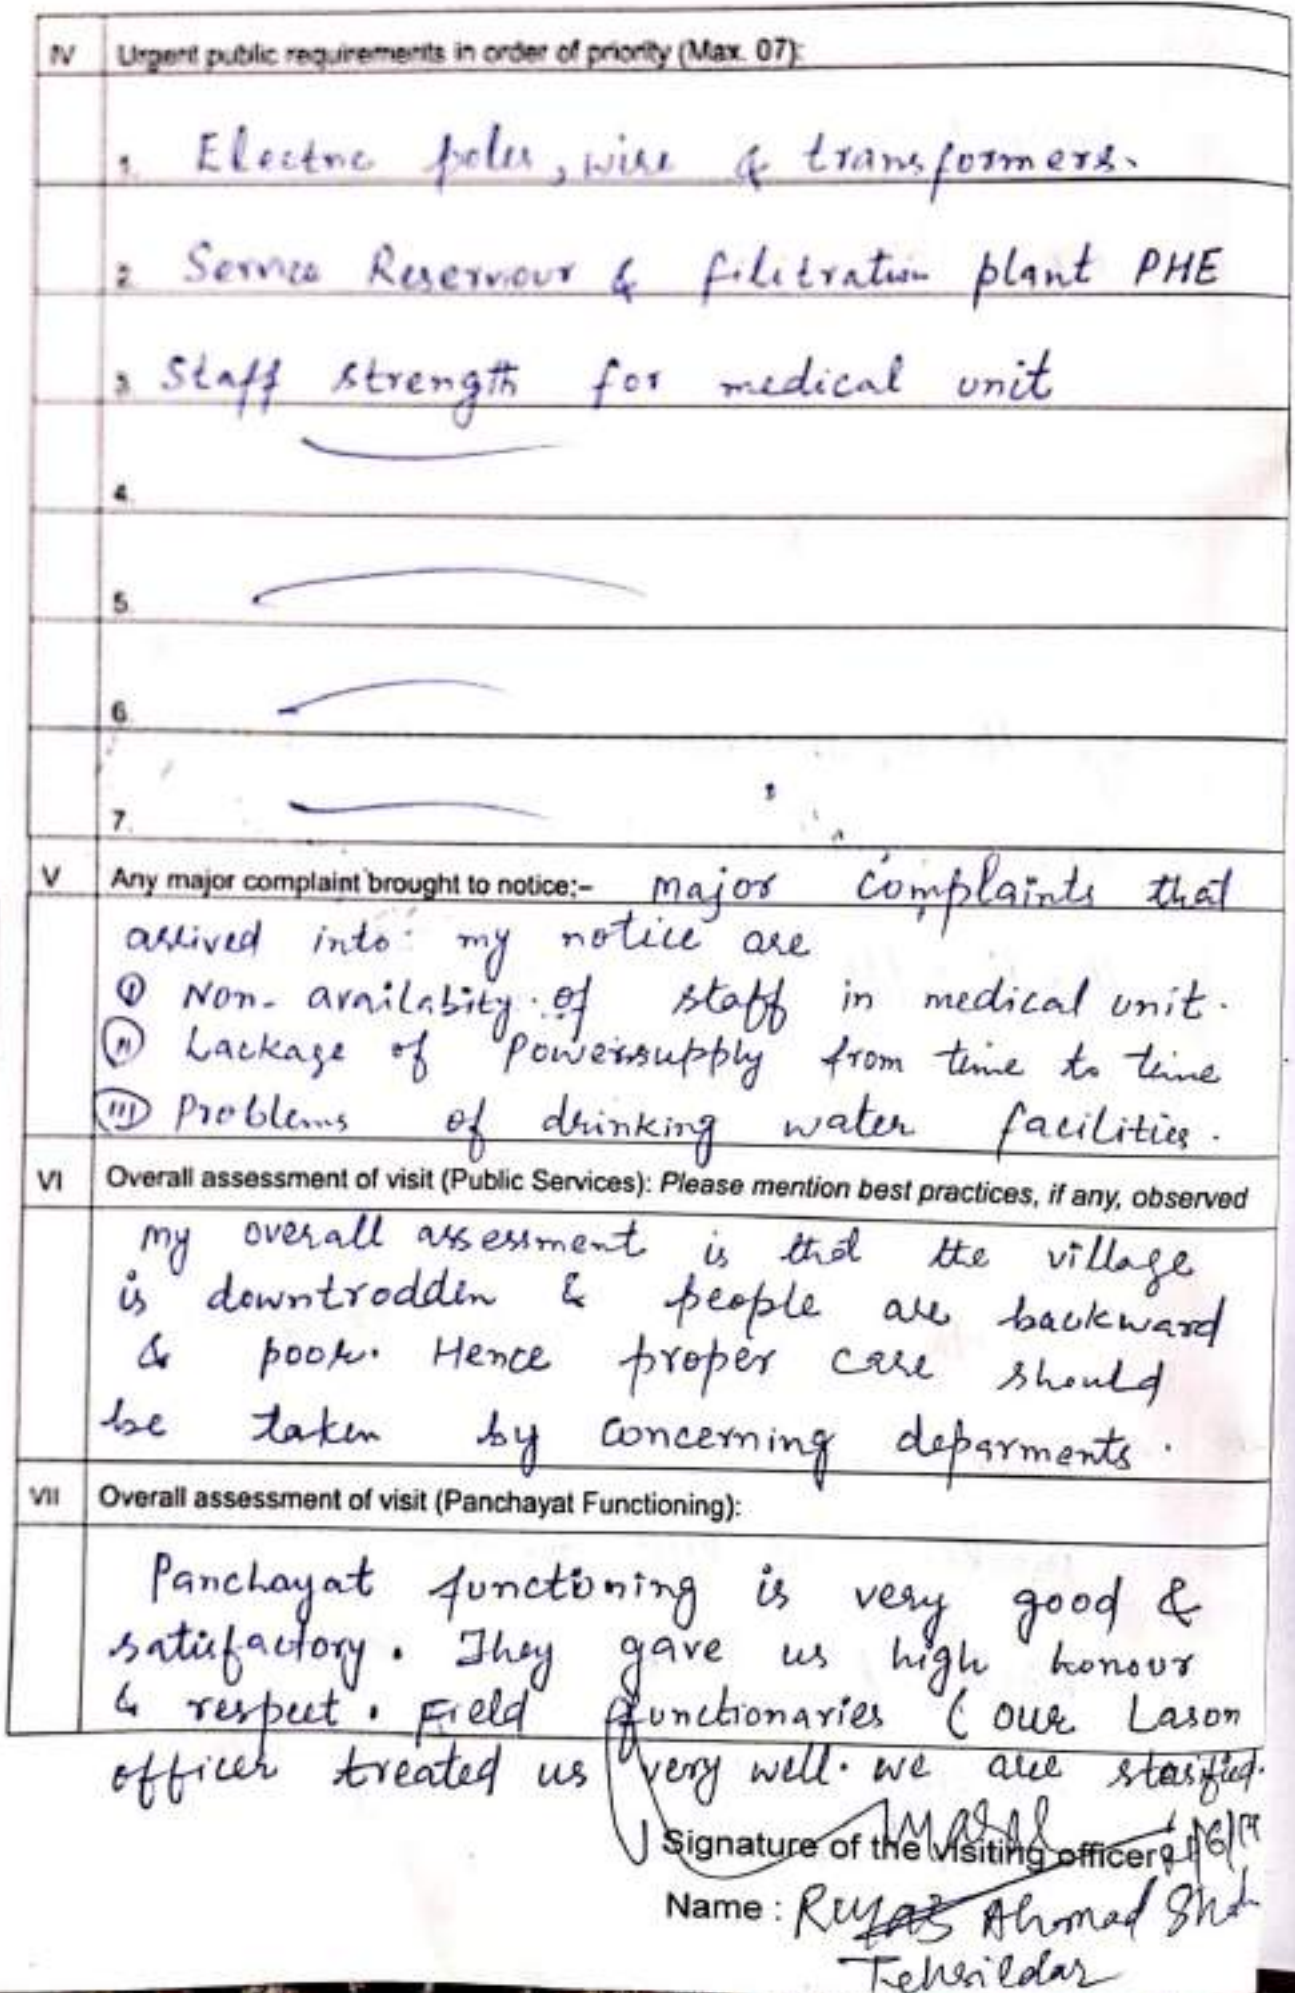 IV Urgent public requirements in order of priority (Max. 07):
1. Electric poles, wire & transformers.
2. Service Reserviour & filitration plant PHE
3. Staff strength for medical unit
4.
5.
6.
7.
V Any major complaint brought to notice:- major complaints that
arrived into my notice are
(I) Non-availabity of staff in medical unit.
(II) Lackage of Powersupply from time to time
(III) Problems of drinking water facilities.
VI Overall assessment of visit (Public Services): Please mention best practices, if any, observed
my overall assessment is that the village
is downtrodden & people are backward
& poor. Hence proper care should
be taken by concerning deparments.
VII Overall assessment of visit (Panchayat Functioning):
Panchayat functioning is very good &
satisfactory. They gave us high honour
& respect. Field functionaries (our Lason
officer treated us very well. we are stasified.
Signature of the visiting officer
Name : Reyaz Ahmad Shah
Tehsildar